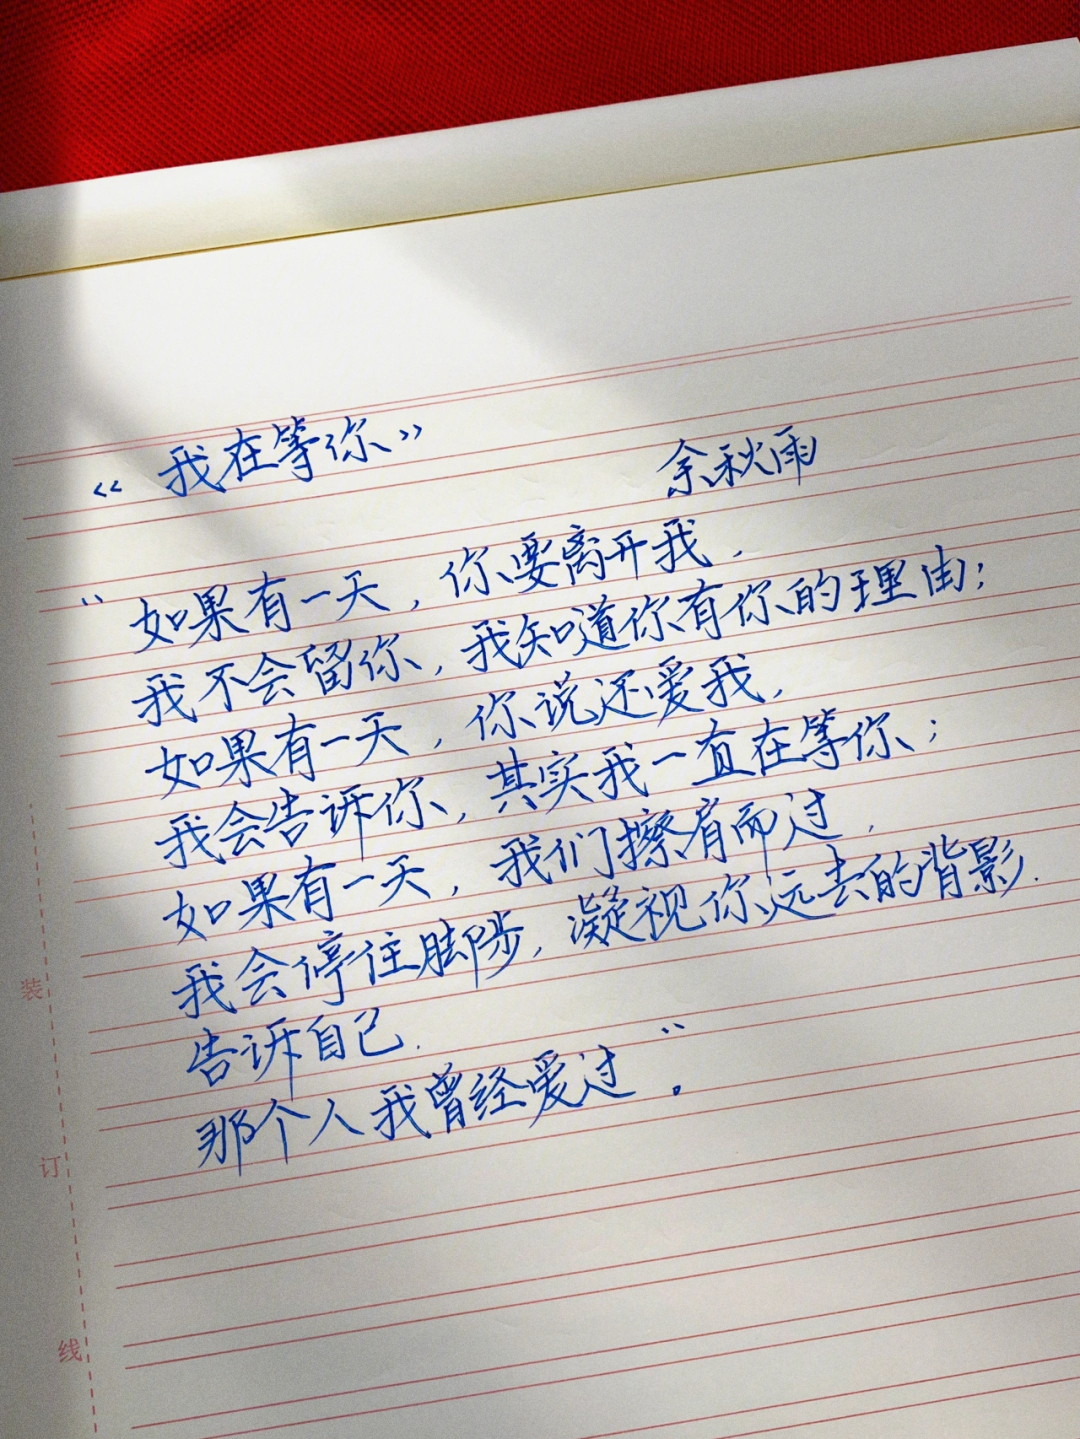 《我在等你》
余秋雨
“如果有一天，你要离开我，
我不会留你，我知道你有你的理由；
如果有一天，你说还爱我，
我会告诉你，其实我一直在等你；
如果有一天，我们擦肩而过，
我会停住脚步，凝视你远去的背影，
告诉自己，
那个人我曾经爱过”。
装
订
线